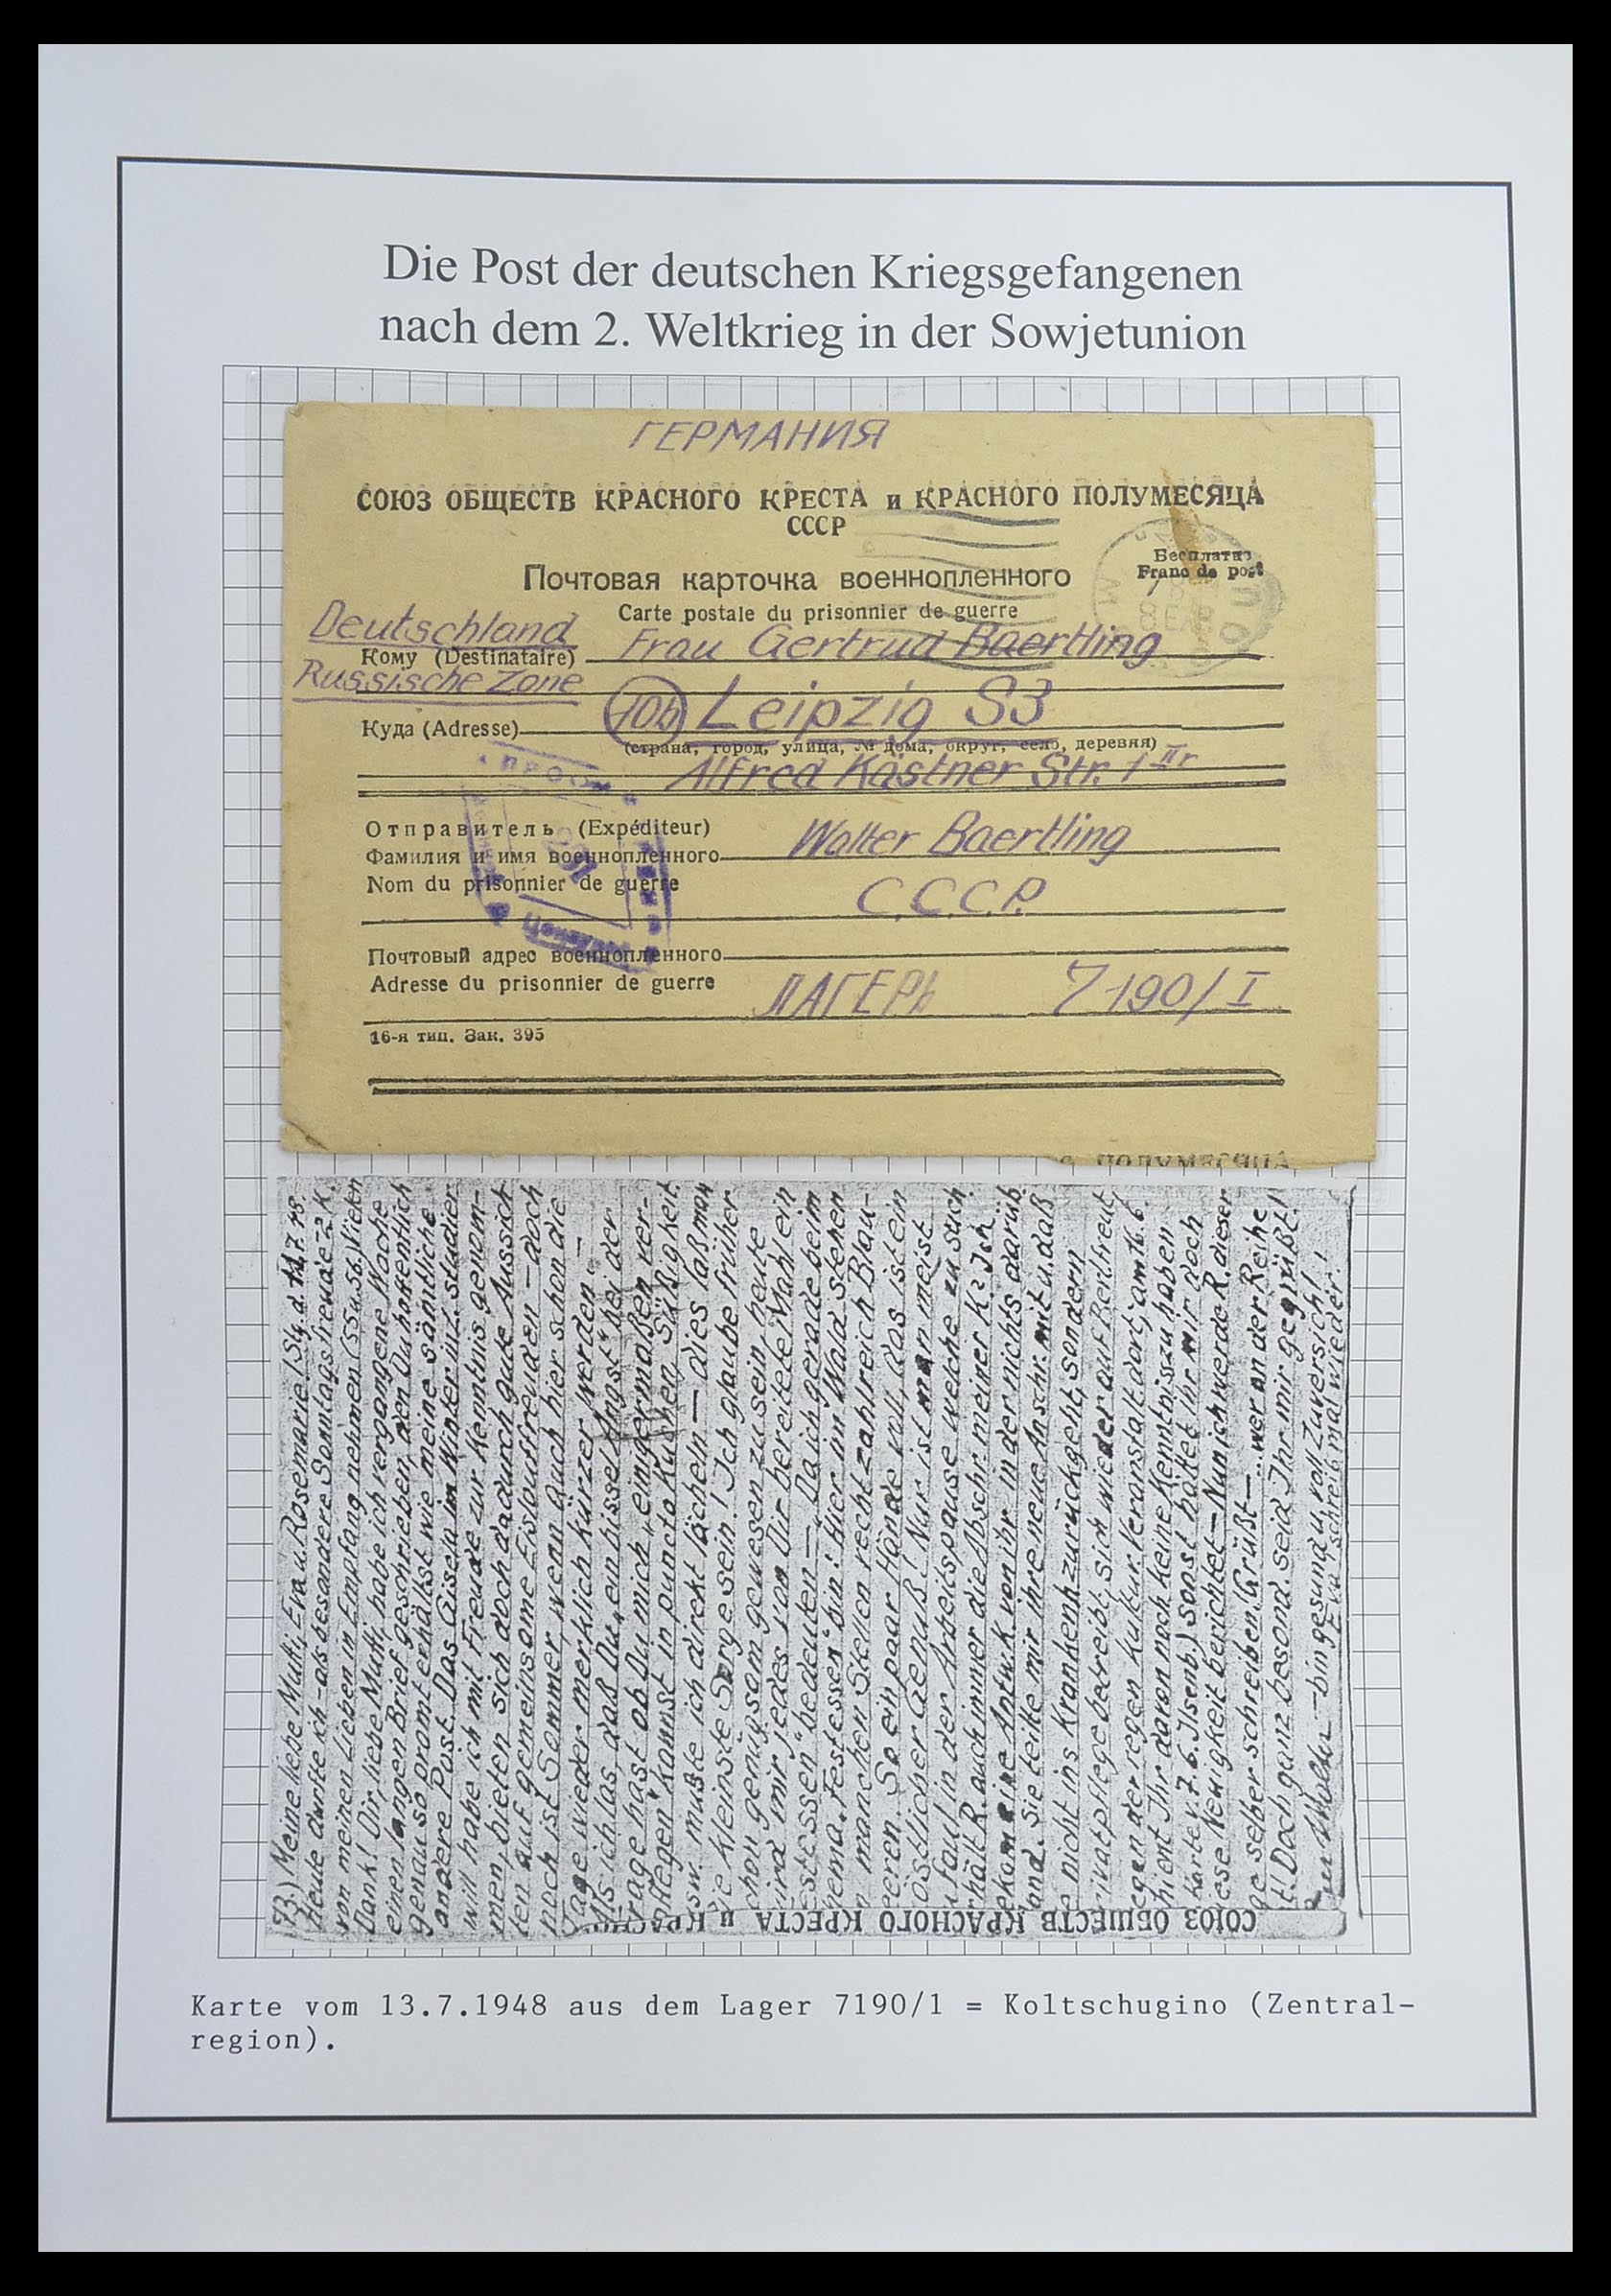 Die Post der deutschen Kriegsgefangenen
nach dem 2. Weltkrieg in der Sowjetunion
ГЕРМАНИЯ
СОЮЗ ОБЩЕСТВ КРАСНОГО КРЕСТА и КРАСНОГО ПОЛУМЕСЯЦА
СССР
Бесплатно
Franc de post
Почтовая карточка военнопленного
Carte postale du prisonnier de guerre
Deutschland
Кому (Destinataire) Frau Gertrud Baertling
Russische Zone
Куда (Adresse) 10b Leipzig S3
(страна, город, улица, № дома, округ, село, деревня)
Alfred Kästner Str. 1 II r
Отправитель (Expéditeur)
Фамилия и имя военнопленного Walter Baertling
Nom du prisonnier de guerre
C.C.C.P.
Почтовый адрес военнопленного
Adresse du prisonnier de guerre ЛАГЕРЬ 7190/I
16-я тип. Зак. 395
ПОЛУМЕСЯЦА
73.) Meine liebe Mutti, Eva u. Rosemarie! Stg. d. 7.48.
Heute durfte ich - als besondere Sonntagsfreude - 2 K.
von meinen Lieben in Empfang nehmen (55 u. 56). Vielen
Dank! Dir, liebe Mutti, habe ich vergangene Woche
einen langen Brief geschrieben, den Du hoffentlich
genauso promt erhältst wie meine sämtliche
andere Post. Das Gisela im Winter int. studier
will habe ich mit Freude zur Kenntnis genom-
men, bieten sich doch dadurch gute Aussich
ten auf gemeinsame Eislauffreuden - doch
noch ist Sommer, wenn auch hier schon die
Tage wieder merklich kürzer werden. -
Als ich las, daß Du „ein bissel Angst" bei der
rage hast ob Du mich „einigermaßen ver-
pflegen" kannst in puncto Kuchen, Süßigkeit
sw. mußte ich direkt lächeln - dies laß man
ie kleinste Sorge sein! Ich glaube früher
chon genügsam gewesen zu sein, heute
wird mir jedes von Dir bereitete Mahl ein
estessen" bedeuten - Da ich gerade beim
hema „Festessen" bin: Hier im Wald stehen
n manchen Stellen recht zahlreich Blau-
eeren. So ein paar Hände voll, das ist ein
östlicher Genuß! Nur ist man meist
u faul in der Arbeitspause welche zu such
rhält R. auch immer die Abschr. meiner K.? Ich
ekam eine Antw. K. von ihr in der nichts darüb
tand. Sie teilte mir ihre neue Anschr. mit u. daß
e nicht ins Krankenh. zurückgeht, sondern
rivatpflege betreibt. Sich wieder auf Reil freut,
egen der regen kultur. Veranstalt. dort, am 16.6.
hient Ihr davon noch keine Kenntnis zu haben
Karte v. 7.6. Ilsenb.) sonst hättet ihr mir doch
iese Neuigkeit berichtet - Nun ich werde R. dieser
ge selber schreiben. Grüßt - ... wer an der Reihe
t! Doch ganz besond. seid Ihr mir gegrüßt!
Walter - bin gesund u. voll Zuversicht!
Eva schreib mal wieder!
СОЮЗ ОБЩЕСТВ КРАСНОГО КРЕСТА и КРАСНО
Karte vom 13.7.1948 aus dem Lager 7190/1 = Koltschugino (Zentral-
region).